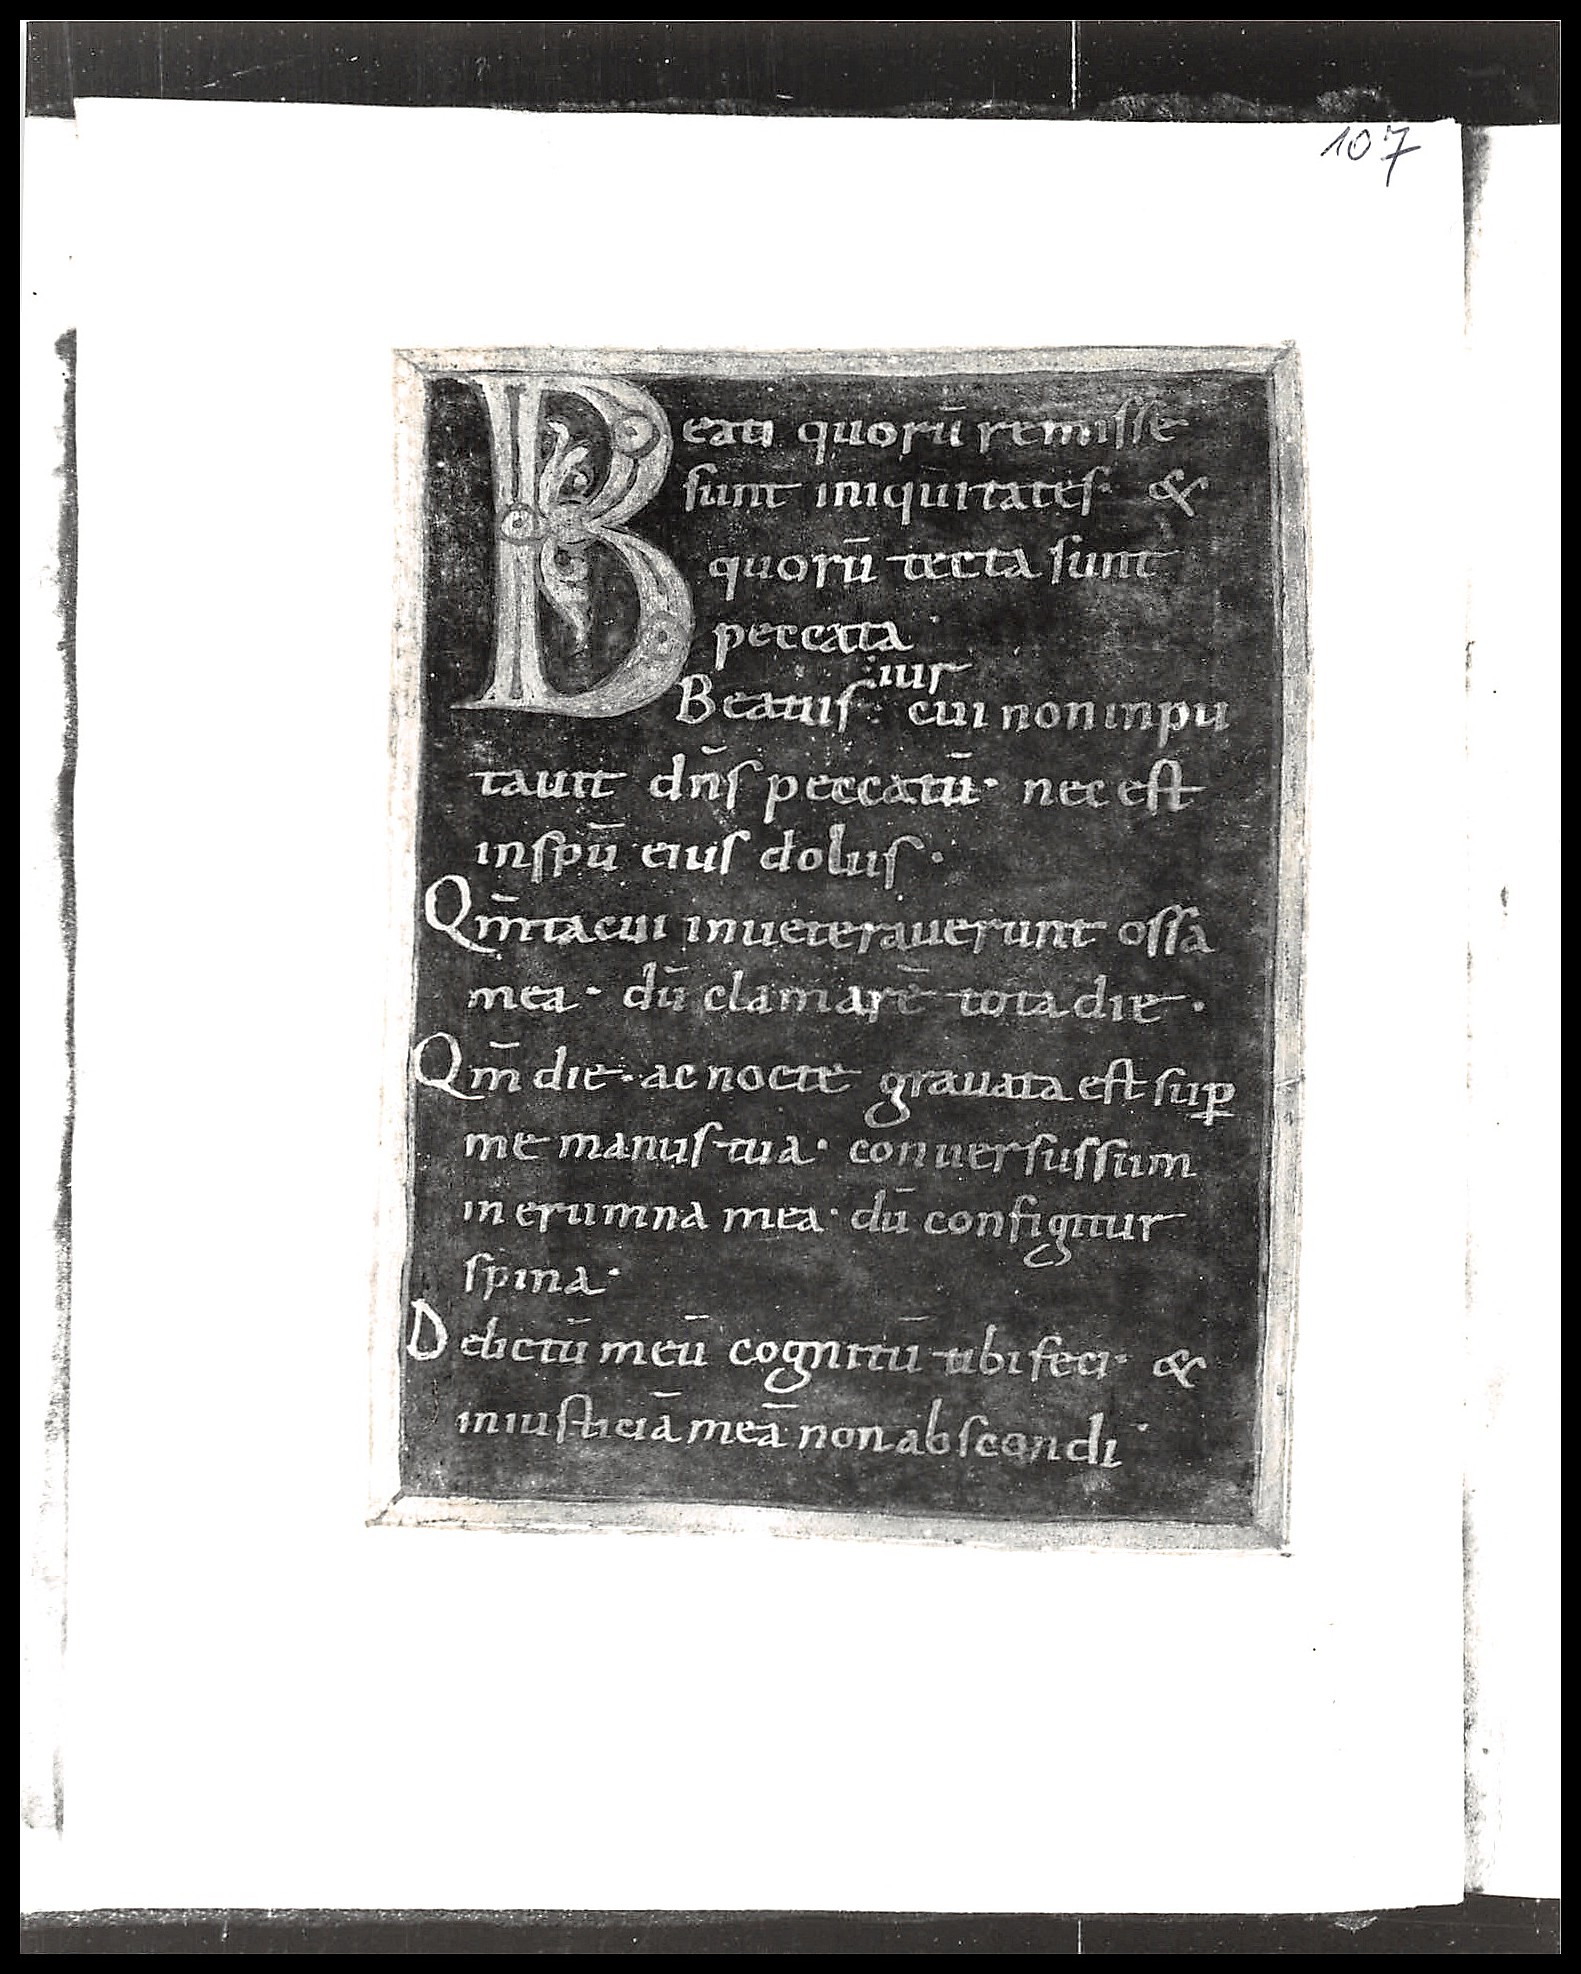 107
Beati quorū remisse
sunt iniquitates· &
quorū tecta sunt
peccata·
uir
Beatus cui non inpu
tauit dn̄s peccatū· nec est
in sp̄u eius dolus·
Qm̄ tacui inueterauerunt ossa
mea· dū clamarē tota die·
Qm̄ die· ac nocte grauata est sup̄
me manus tua· conuersus sum
in erumna mea· dū configitur
spina·
Delictū meū cognitū tibi feci· &
iniusticiā meā non abscondi·